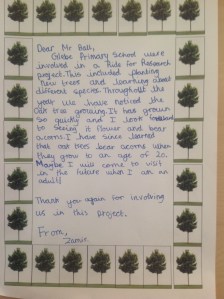 Dear Mr Ball,
Glebe Primary School were
involved in a Ride for Research
project. This included planting
new trees and learning about
different species. Throughout the
year we have noticed the
oak tree growing. It has grown
so quickly and I look forward
to seeing it flower and bear
acorns. I have since learned
that oak trees bear acorns when
they grow to an age of 20.
Maybe I will come to visit
in the future when I am an
adult!
Thank you again for involving
us in this project.
From,